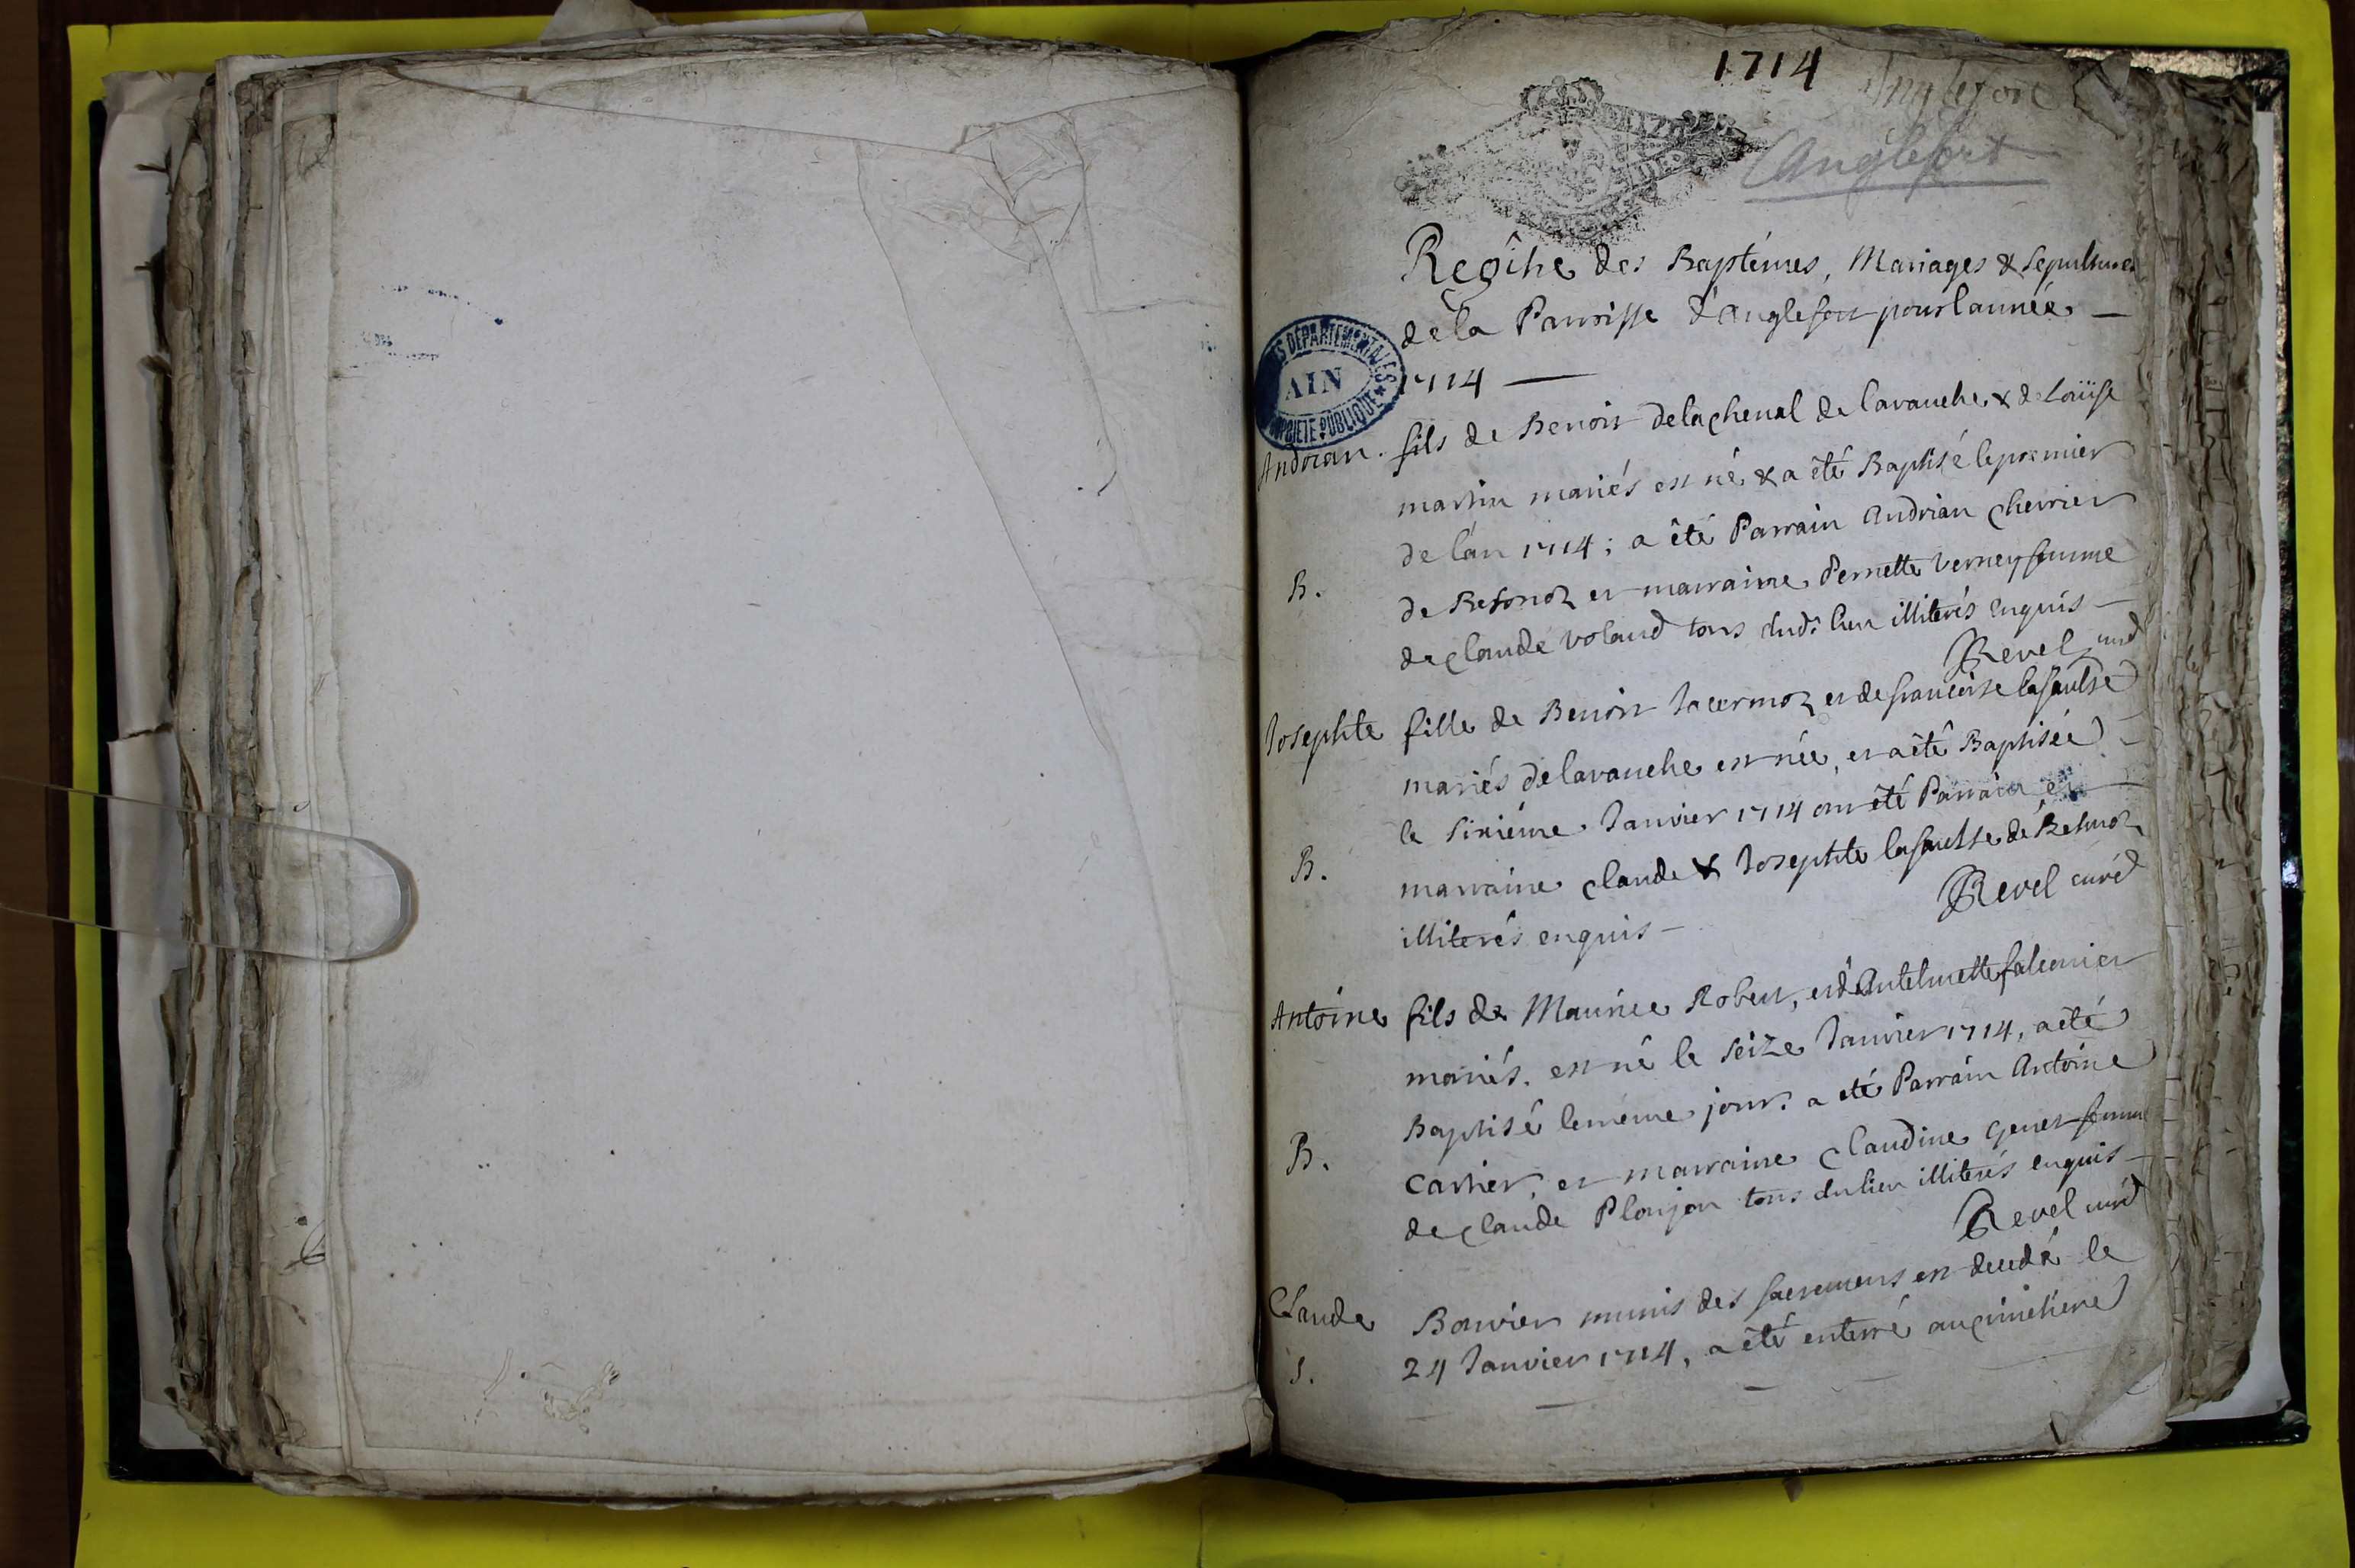 1714
Anglefort
Anglefort
ARCHIVES DÉPARTEMENTALES
AIN
PROPRIÉTÉ PUBLIQUE
Regître des Baptémes, Mariages & Sepultures
de la Parroisse d'Anglefort pour lannée —
1714 —
Andrian. fils de Benoit delachenal de lavanche & de Loüise
martin mariés est né & a été Baptisé le premier
de lan 1714 ; a êté Parrain Andrian Cherrier
B.
de Resonoz et marraine Pernette Verney femme
de Claude Voland tous dud. lieu illiterés enquis —
Revel curé
Iosephte fille de Benoit Iacermoz et de francoise lafausse
mariés de lavanche est née, et a êté Baptisée —
le sixiéme Ianvier 1714 ont été Parrain et
B.
marraine Claude & Iosephte lafausse de
illiterés enquis —
Revel curé
Antoine fils de Maurice Robert, et d'Antelmette falconier
mariés. est né le seize Ianvier 1714, a été
Baptisé le méme jour. a eté Parrain Antoine
B.
Carrier, et marraine Claudine Genet femme
de Claude Plonjon tous du lieu illiterés enquis —
Revel curé
Claude Bouvier munis des sacremens est decedé le
S. 24 Ianvier 1714, a êté enterré au cimetiere